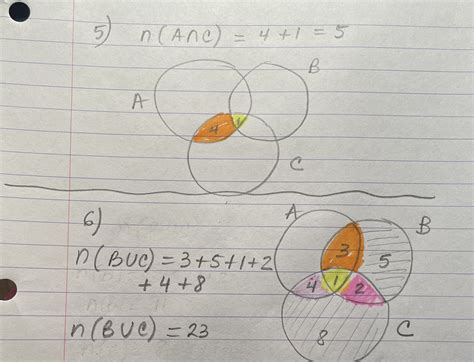 5) n(A∩C) = 4+1 = 5
B
A
4 1
C
6)
A
B
n(B∪C) = 3+5+1+2
+4+8
3
5
4 1 2
n(B∪C) = 23
8
C